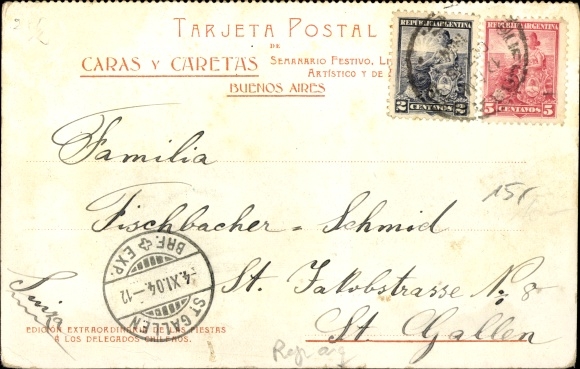 TARJETA POSTAL
DE
CARAS Y CARETAS SEMANARIO FESTIVO, LI
ARTÍSTICO Y DE
BUENOS AIRES
REPUBLICA ARGENTINA
2 CENTAVOS 2
REPUBLICA ARGENTINA
5 CENTAVOS 5
Familia
Fischbacher-Schmid
St. Jakobstrasse No 80
St. Gallen
Suiza
15
ST. GALLEN
-4.XI.04.-12
BRF. EXP.
EDICIÓN EXTRAORDINARIA DE LAS FIESTAS
Á LOS DELEGADOS CHILENOS.